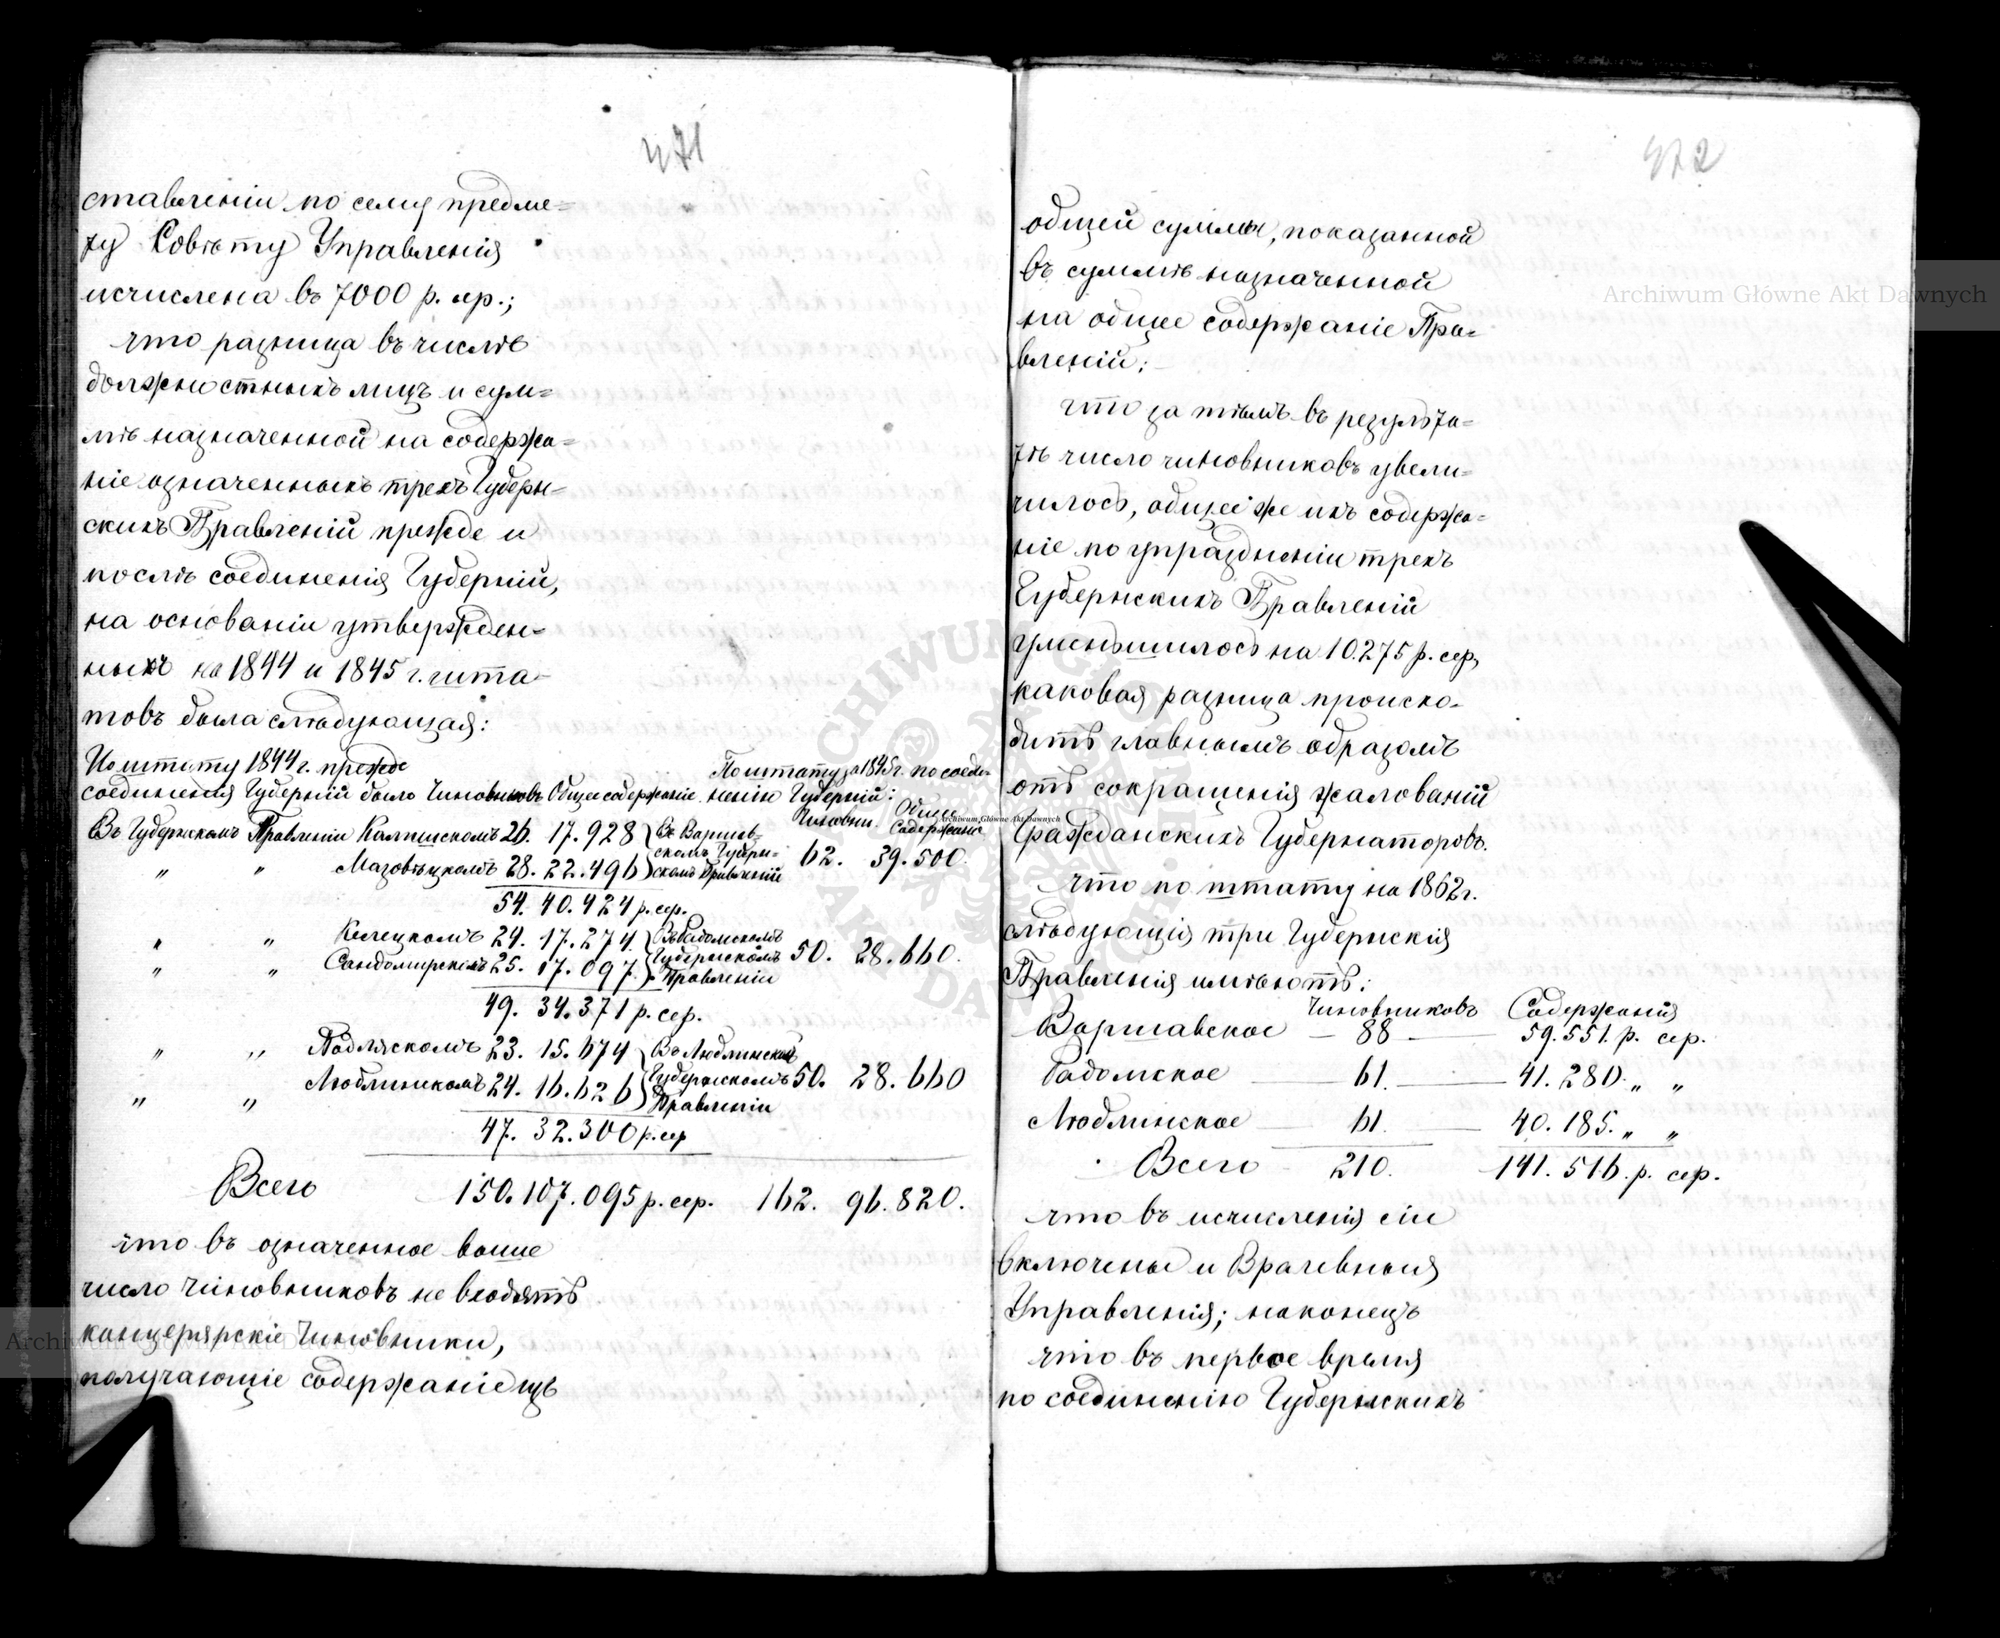 471
ставленіи по сему предме=
ту Совѣту Управленія
исчислена въ 7000 р. сер.;
что разница въ числѣ
должностныхъ лицъ и сум=
мѣ назначенной на содержа=
ніе означенныхъ трехъ Губерн=
скихъ Правленій прежде и
послѣ соединенія Губерній,
на основаніи утвержден=
ныхъ на 1844 и 1845 г. шта=
товъ была слѣдующая:
По штату 1844 г. прежде
соединенія Губерній было Чиновниковъ Общее содержаніе
По штату за 1845 г. по соеди=
ненію Губерній:
Чиновн. Общее Содержаніе
Въ Губернскомъ Правленіи Калишскомъ 26. 17.928
" " Мазовѣцкомъ 28. 22.496
Въ Варшав=
скомъ Губерн=
скомъ Правленіи 62. 39.500.
54. 40.424 р. сер.
" " Келецкомъ 24. 17.274.
" " Сандомирскомъ 25. 17.097.
Въ Радомскомъ
Губернскомъ
Правленіи 50. 28.660.
49. 34.371 р. сер.
" " Подляскомъ 23. 15.674
" " Люблинскомъ 24. 16.626
Въ Люблинскомъ
Губернскомъ
Правленіи 50. 28.660
47. 32.300 р. сер
Всего 150. 107.095 р. сер. 162. 96.820.
что въ означенное выше
число Чиновниковъ не входятъ
канцелярскіе Чиновники,
получающіе содержаніе изъ
472
общей суммы, показанной
въ суммѣ назначенной
на общее содержаніе Пра=
вленій;
что за тѣмъ въ результа=
тѣ число чиновниковъ увели=
чилось, общее же ихъ содержа=
ніе по упраздненіи трехъ
Губернскихъ Правленій
уменьшилось на 10.275 р. сер,
каковая разница происхо=
дитъ главнымъ образомъ
отъ сокращенія жалованій
Гражданскихъ Губернаторовъ.
что по штату на 1862 г.
слѣдующія три Губернскія
Правленія имѣютъ:
Чиновниковъ Содержанія
Варшавское — 88 — 59.551. р. сер.
Радомское — 61. — 41.280. " "
Люблинское — 61. — 40.185. " "
Всего — 210. 141.516. р. сер.
что въ исчисленія сіи
включены и Врачебныя
Управленія; наконецъ
что въ первое время
по соединенію Губернскихъ
Archiwum Główne Akt Dawnych
Archiwum Główne Akt Dawnych
Archiwum Główne Akt Dawnych
ARCHIWUM GŁÓWNE AKT DAWNYCH